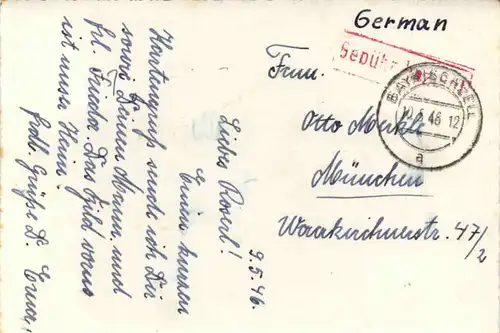 German
Gebühr
BAYRISCHZELL
10.5.46.12
a
Fam.
Otto Merkle
München
Waakirchnerstr. 47/2
9.5.46.
Liebe Roserl!
Einen kurzen
Kartengruß sende ich Dir
sowie Deinem Mann und
frl. Frieda. Das Bild vorne
ist unser Heim.
Frdl. Grüße D. Erna.